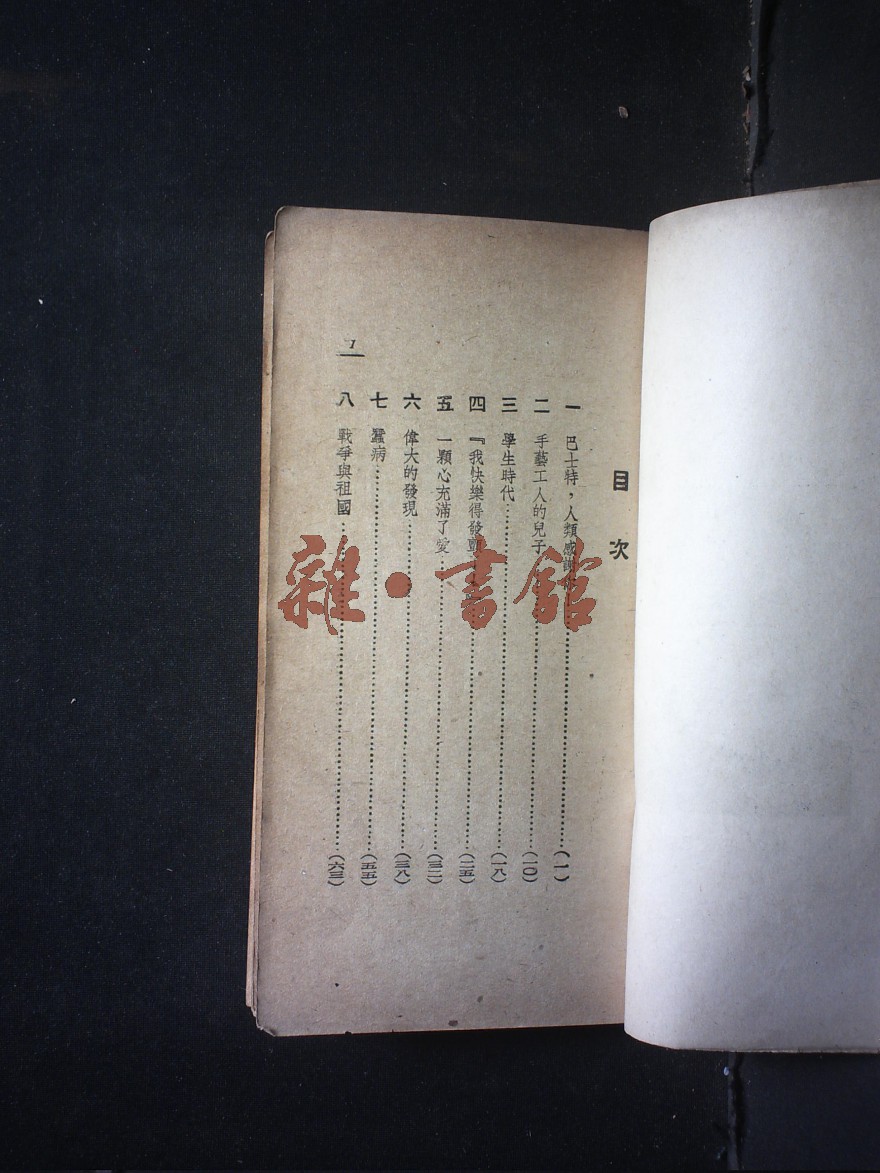 目次
一 巴士特，人類感謝你……(一)
二 手藝工人的兒子……(一〇)
三 學生時代……(一八)
四 『我快樂得發顫……(二五)
五 一顆心充滿了愛……(三二)
六 偉大的發現……(三八)
七 蠶病……(五五)
八 戰爭與祖國……(六三)
1
雜·書館